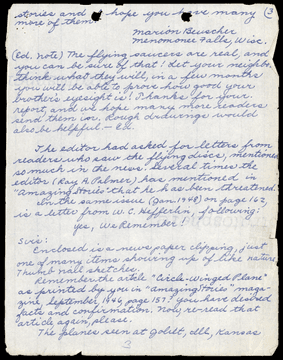 stories and I hope you have many (3
more of them.
Marion Beuscher
Menomonee Falls, Wisc.
(Ed. note) The flying saucers are real, and
you can be sure of that! Let your neighbors
think what they will, in a few months
you will be able to prove how good your
brothers eyesight is! Thanks for your
report, and we hope many more readers
send them in. Rough drawings would
also be helpful. — Ed.
The editor had asked for letters from
readers who saw the flying discs, mentioned
so much in the news. Several times the
editor (Ray A. Palmer) has mentioned in
"Amazing Stories" that he has been threatened.
In the same issue (Jan. 1948) on page 162,
is a letter from W. C. Hefferlin, following:
Yes, We Remember!
Sirs:
Enclosed is a newspaper clipping, just
one of many items showing up of like nature.
Thumb nail sketches.
Remember the article "Circle-Winged Plane"
as printed by you in "Amazing Stories" maga-
zine, September 1946, page 157? You have desired
facts and confirmation. Now re-read that
article again, please.
The planes seen at Joliet, Ill., Kansas
3